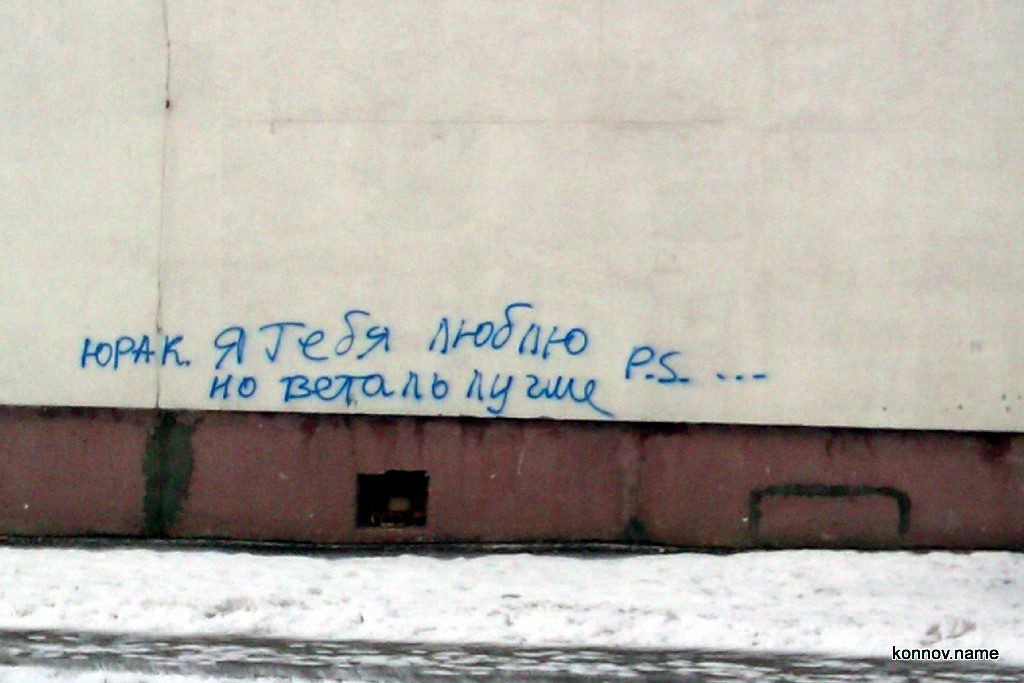 ЮРАК. Я Тебя люблю
но веталь лучше P.S. ...
konnov.name